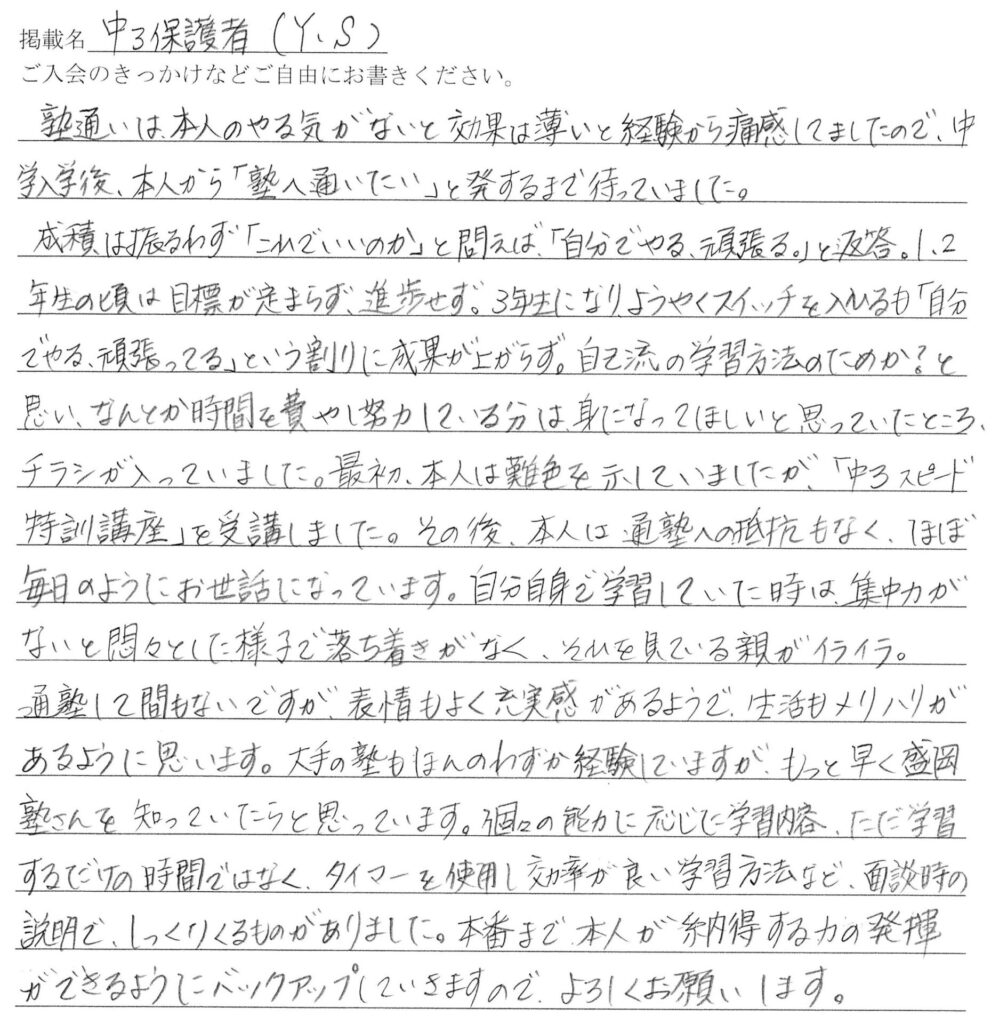 掲載名 中3保護者(Y.S)
ご入会のきっかけなどご自由にお書きください。
塾通いは、本人のやる気がないと効果は薄いと経験から痛感してましたので、中
学入学後、本人から「塾へ通いたい」と発するまで待っていました。
成積は振るわず「これでいいのか」と問えば、「自分でやる、頑張る。」と返答。1、2
年生の頃は目標が定まらず、進歩せず。3年生になり、ようやくスイッチを入れるも「自分
でやる、頑張ってる」という割りに成果が上がらず。自己流の学習方法のためか?と
思い、なんとか時間を費やし努力している分は、身になってほしいと思っていたところ、
チラシが入っていました。最初、本人は難色を示していましたが、「中3スピード
特訓講座」を受講しました。その後、本人は通塾への抵抗もなく、ほぼ
毎日のようにお世話になっています。自分自身で学習していた時は、集中力が
ないと悶々とした様子で落ち着きがなく、それを見ている親がイライラ。
通塾して間もないですが、表情もよく充実感があるようで、生活もメリハリが
あるように思います。大手の塾もほんのわずか経験していますが、もっと早く盛岡
塾さんを知っていたらと思っています。個々の能力に応じた学習内容、ただ学習
するだけの時間ではなく、タイマーを使用し効率が良い学習方法など、面談時の
説明で、しっくりくるものがありました。本番まで、本人が納得する力の発揮
ができるようにバックアップしていきますので、よろしくお願いします。